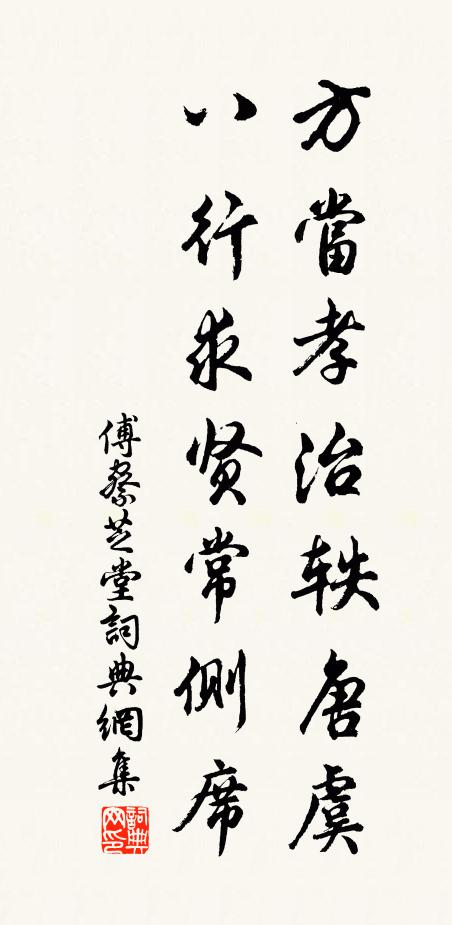 方當孝治軼唐虞
八行求贤常側席
傅察芝堂詞典網集
詞典网印